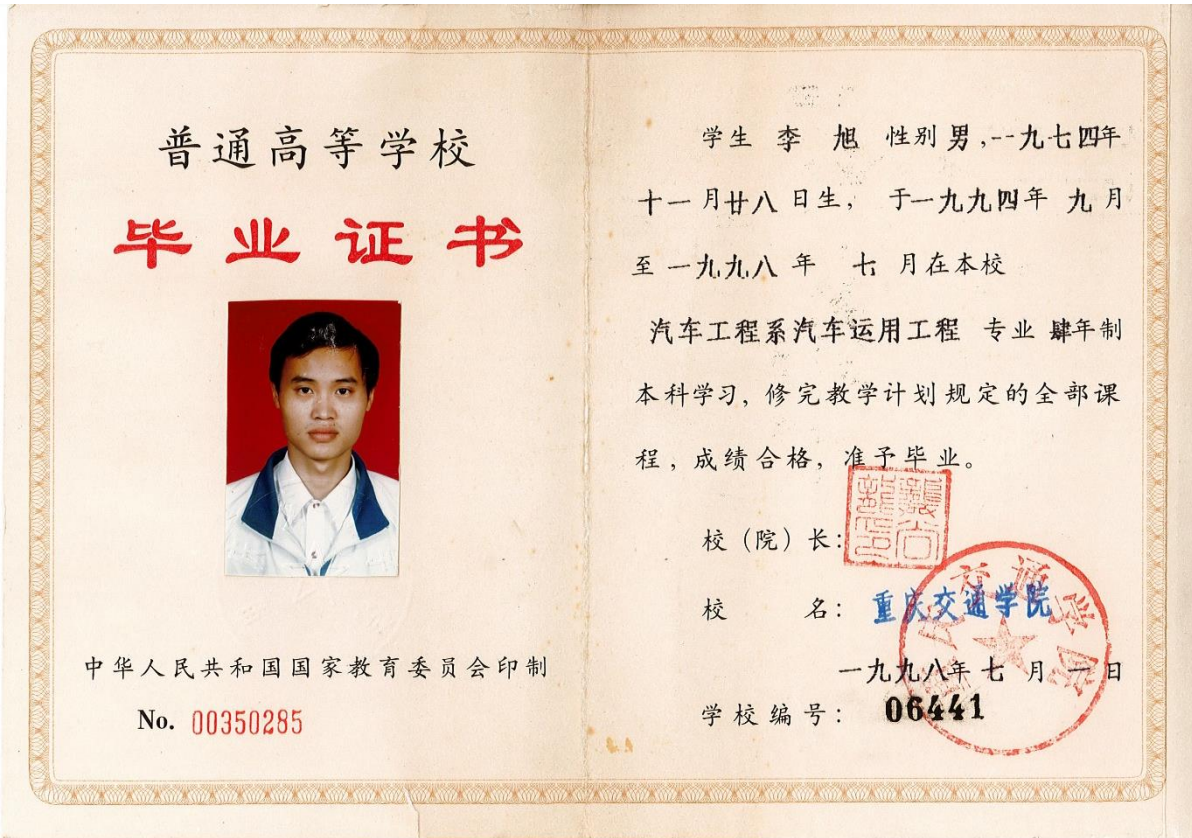 普通高等学校
毕业证书
中华人民共和国国家教育委员会印制
No. 00350285
学生 李 旭 性别 男,一九七四年
十一月廿八日生, 于一九九四年 九月
至 一九九八 年 七 月在本校
汽车工程系汽车运用工程 专业 肆年制
本科学习, 修完教学计划规定的全部课
程, 成绩合格, 准予毕业。
校(院)长:
校 名: 重庆交通学院
一九九八年 七 月 一 日
学校编号: 06441